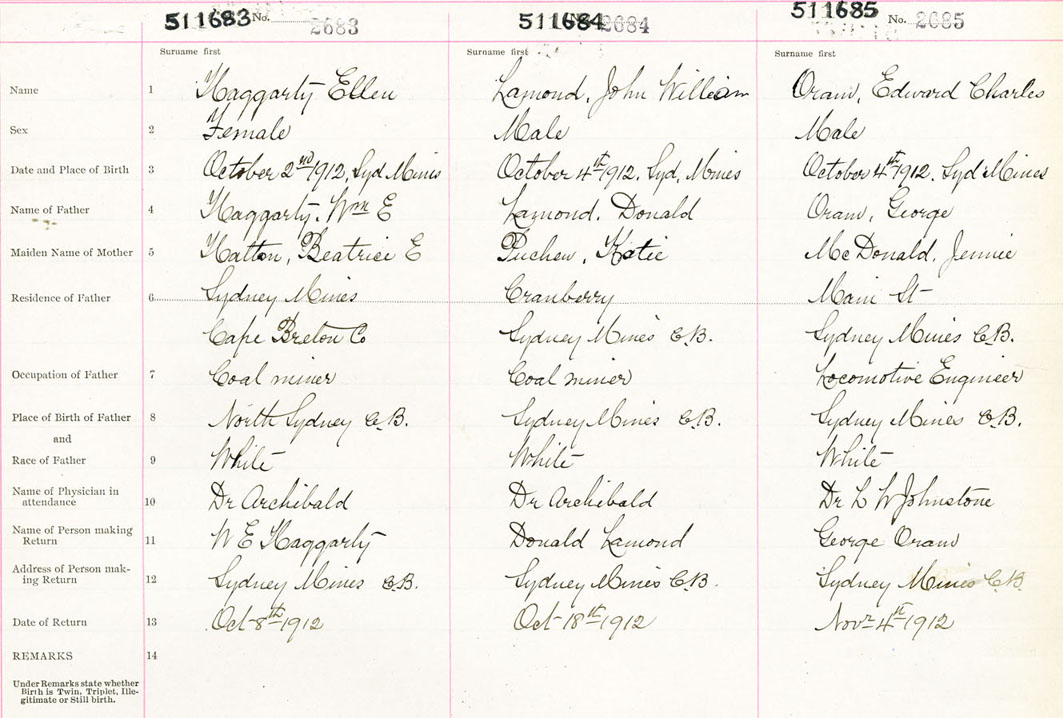 511683 No. 2683 511684 2684 511685 No. 2685
Surname first Surname first Surname first
Name 1 Haggarty Ellen Lamond, John William Oram, Edward Charles
Sex 2 Female Male Male
Date and Place of Birth 3 October 2nd 1912, Syd Mines October 4th 1912, Syd, Mines October 4th 1912, Syd Mines
Name of Father 4 Haggarty, Wm E Lamond, Donald Oram, George
Maiden Name of Mother 5 Hatton, Beatrice E Katie McDonald, Jennie
Residence of Father 6 Sydney Mines Cranberry Main St
Cape Breton Co Sydney Mines C.B. Sydney Mines C.B.
Occupation of Father 7 Coal miner Coal miner Locomotive Engineer
Place of Birth of Father 8 North Sydney C.B. Sydney Mines C.B. Sydney Mines C.B.
and
Race of Father 9 White White White
Name of Physician in
attendance 10 Dr Archibald Dr Archibald Dr L W Johnstone
Name of Person making
Return 11 W E Haggarty Donald Lamond George Oram
Address of Person mak-
ing Return 12 Sydney Mines C.B. Sydney Mines C.B. Sydney Mines C.B
Date of Return 13 Oct 8th 1912 Oct 18th 1912 Novr 4th 1912
REMARKS 14
Under Remarks state whether
Birth is Twin, Triplet, Ille-
gitimate or Still birth.